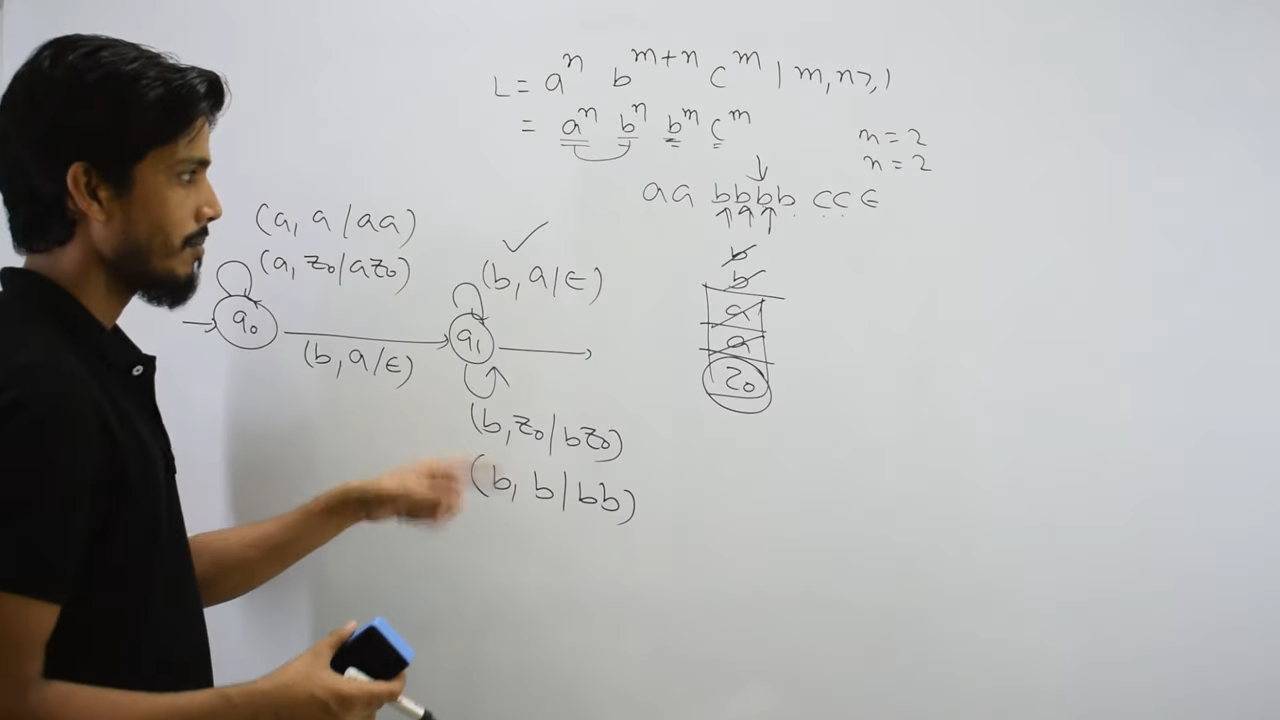 L = a^n b^{m+n} c^m | m, n ≥, 1
= a^n b^n b^m c^m
m = 2
n = 2
aa bbbb cc ϵ
(a, a / aa)
(a, z₀ / az₀)
(b, a / ϵ)
q₀
(b, a / ϵ)
q₁
(b, z₀ / bz₀)
(b, b / bb)
b
b
a
a
z₀